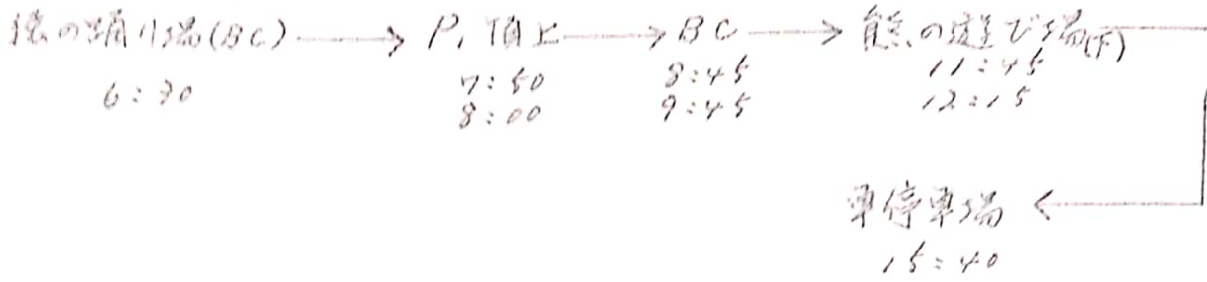 猿の踊り場(BC) → P1頂上 → BC → 熊の遊び場(下)
6:30 7:50 8:45 11:45
8:00 9:45 12:15
車停車場 ←
15:40